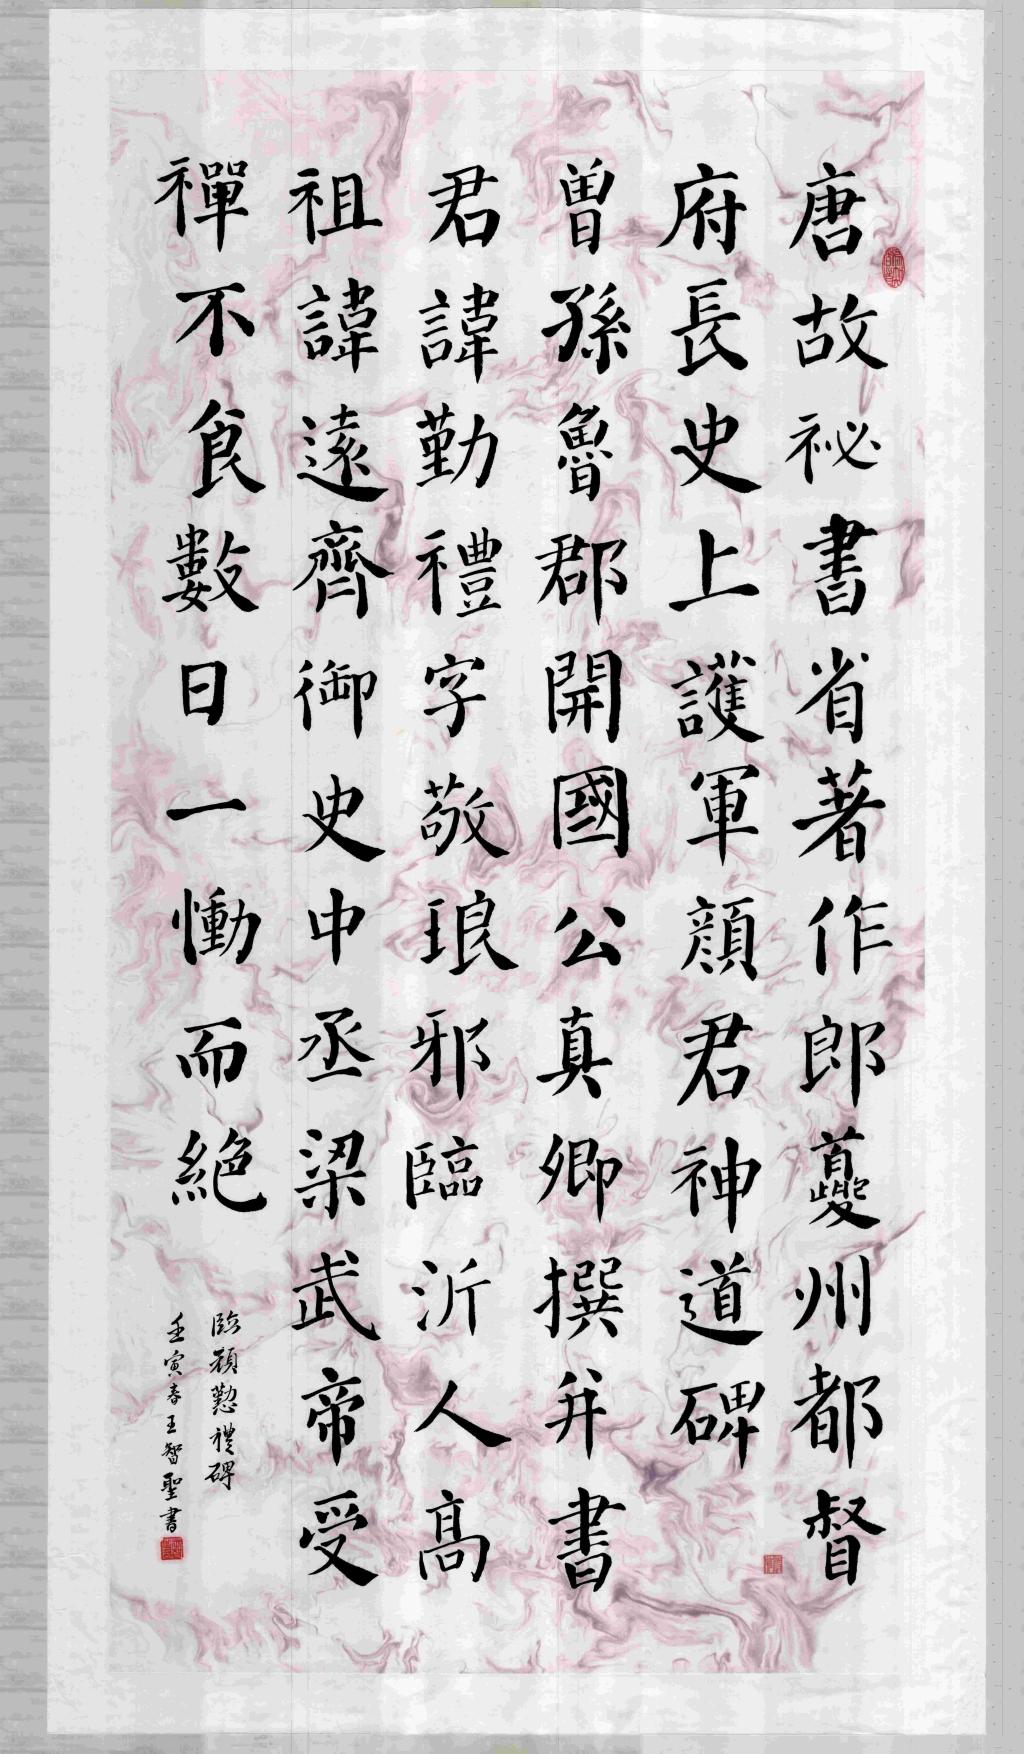 唐故祕書省著作郎夔州都督
府長史上護軍顏君神道碑
曾孫魯郡開國公真卿撰并書
君諱勤禮字敬琅邪臨沂人高
祖諱遠齊御史中丞梁武帝受
禪不食數日一慟而絕
臨顏勤禮碑
壬寅春王智聖書